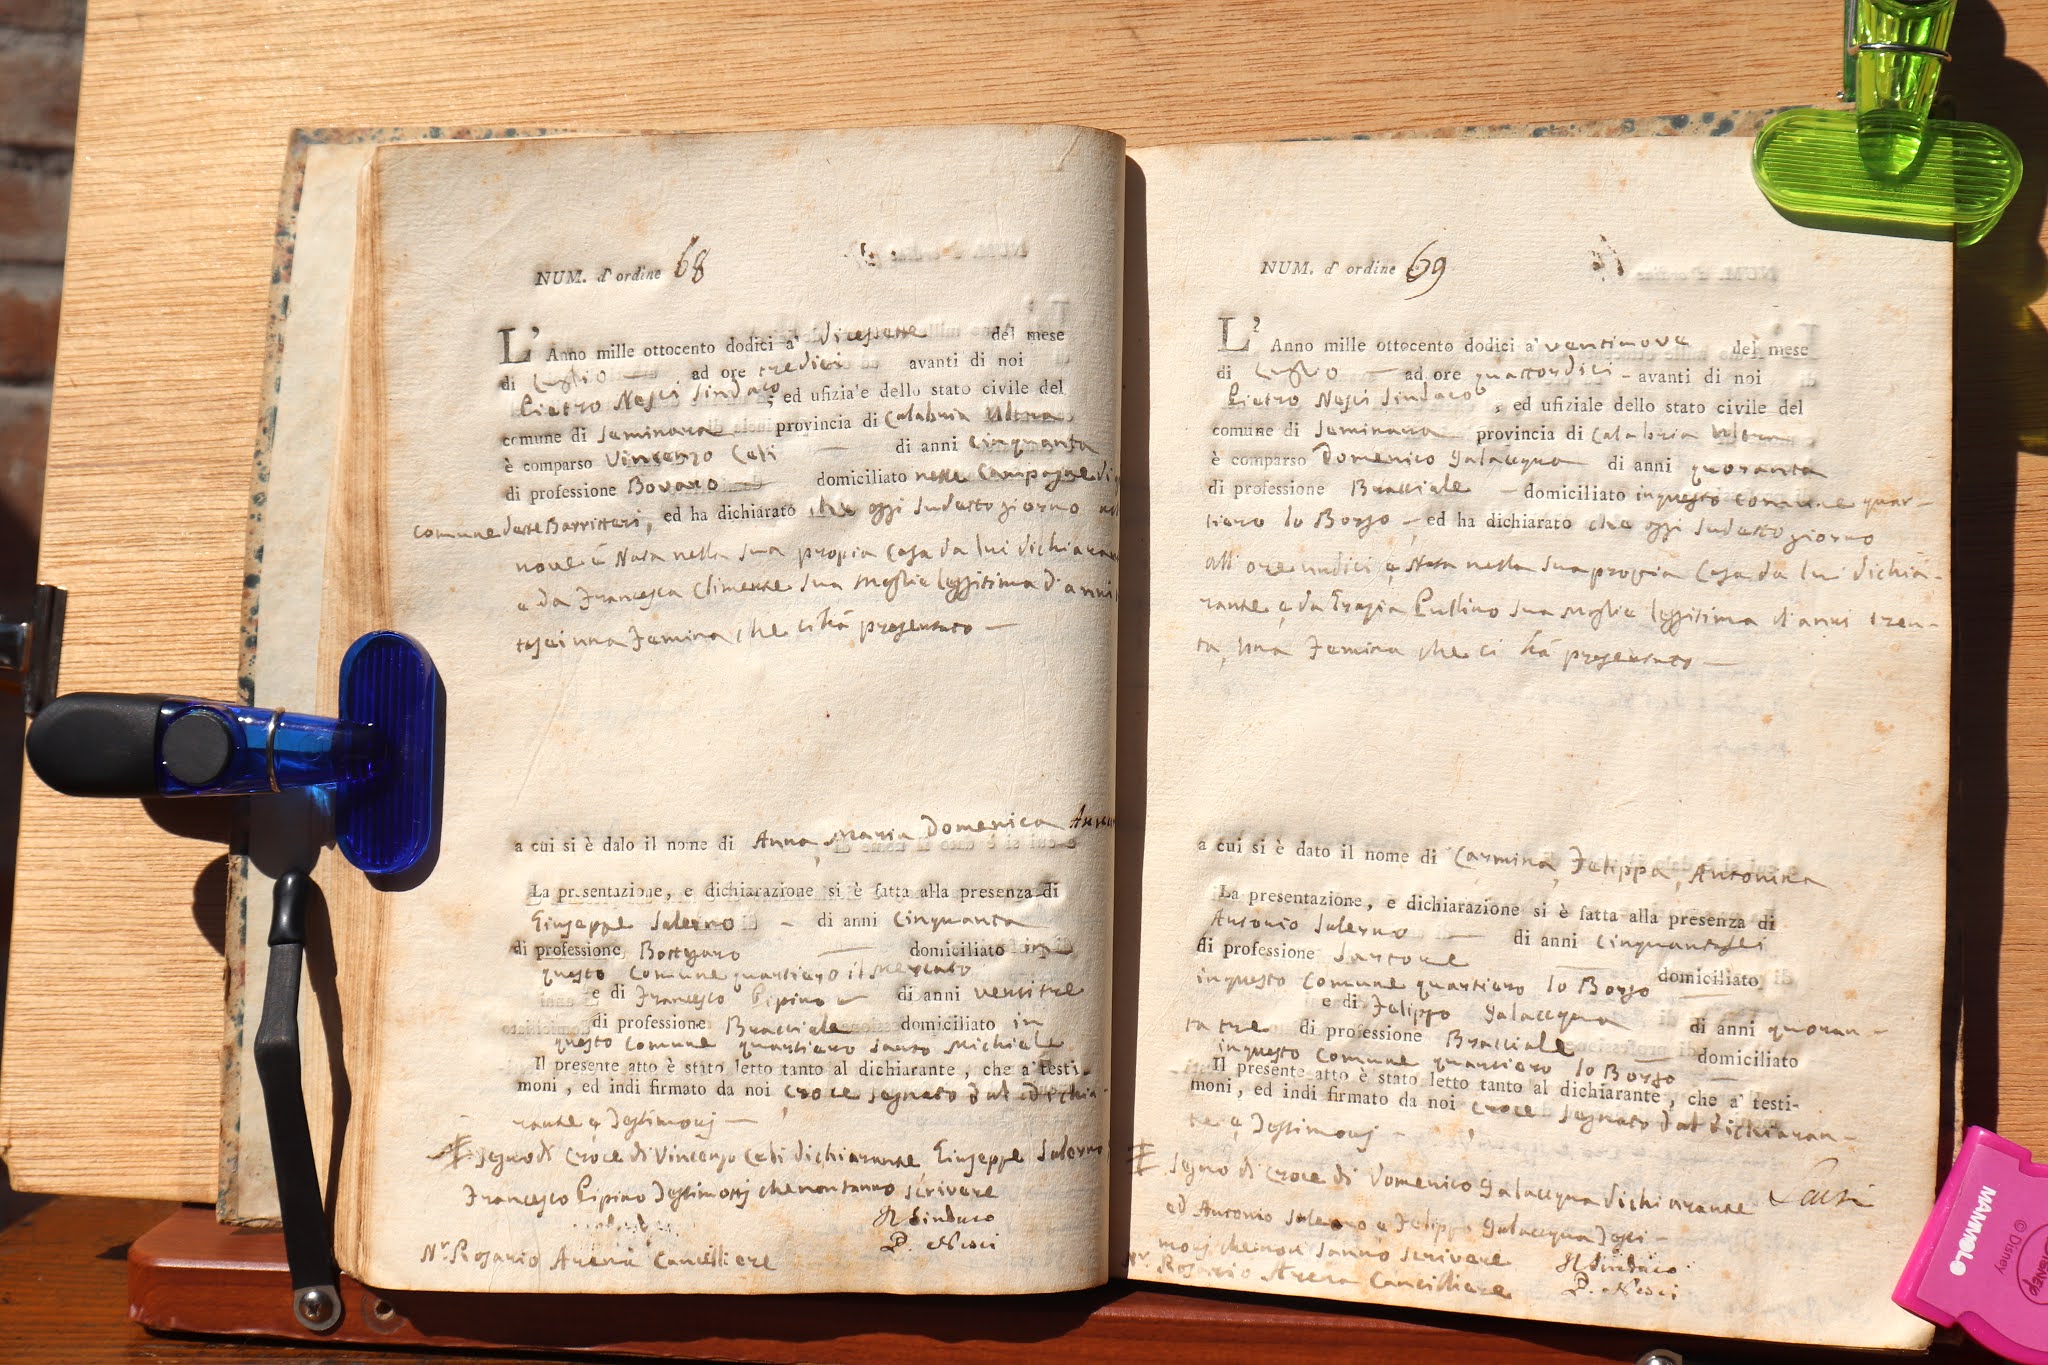 NUM. d'ordine 68
L' Anno mille ottocento dodici a' diciessette del mese
di Luglio ad ore tredici avanti di noi
Pietro Nesci Sindaco, ed ufiziale dello stato civile del
comune di Seminara provincia di Calabria Ultra
è comparso Vincenzo Celi di anni Cinquanta
di professione Bovaro domiciliato nelle Campagne di
comune delle Barritteri, ed ha dichiarato che oggi sudetto giorno
nove è Nata nella sua propia Casa da lui dichiaran
e da Francesca Climente sua Moglie leggittima d'anni
tasei una Femina che ci hà presentato —
a cui si è dato il nome di Anna, Maria Domenica
La presentazione, e dichiarazione si è fatta alla presenza di
Giuseppe Salerno - di anni Cinquanta
di professione Bottegaro domiciliato in
questo Comune quartiero il Mercato
e di Francesco Pipino di anni ventitre
di professione Bracciale domiciliato in
questo Comune quartiero Santo Michiele
Il presente atto è stato letto tanto al dichiarante, che a' testi-
moni, ed indi firmato da noi, croce segnato dal dichia-
rante e Testimonj —
Segno di Croce di Vincenzo Celi dichiarante Giuseppe Salerno
Francesco Pipino Testimonj che non sanno scrivere
Il Sindaco
P. Nesci
Nr. Rosario Arena Cancelliere
NUM. d'ordine 69
L' Anno mille ottocento dodici a' ventinove del mese
di Luglio — ad ore quattordici - avanti di noi
Pietro Nesci Sindaco, ed ufiziale dello stato civile del
comune di Seminara provincia di Calabria Ultra
è comparso Domenico Galacqua di anni quaranta
di professione Bracciale — domiciliato in questo Comune quar-
tiero lo Borgo — ed ha dichiarato che oggi sudetto giorno
all'ore undici è Nata nella sua propia Casa da lui dichia-
rante e da Grazia Pullino sua Moglie leggittima d'anni tren-
ta, una Femina che ci hà presentato —
a cui si è dato il nome di Carmina, Felippa, Antonina
La presentazione, e dichiarazione si è fatta alla presenza di
Antonio Salerno — di anni Cinquantasei
di professione Sartore domiciliato
in questo Comune quartiero lo Borgo
e di Felippo Galacqua di anni quoran-
ta tre di professione Bracciale domiciliato
in questo Comune quartiero lo Borgo
Il presente atto è stato letto tanto al dichiarante, che a' testi-
moni, ed indi firmato da noi croce segnato dal dichiaran-
te e Testimonj -
Segno di Croce di Domenico Galacqua dichiarante
ed Antonio Salerno e Felippo Galacqua Testi-
monj che non sanno scrivere
Il Sindaco
P. Nesci
Nr. Rosario Arena Cancelliere
MAMMOLO
© Disney